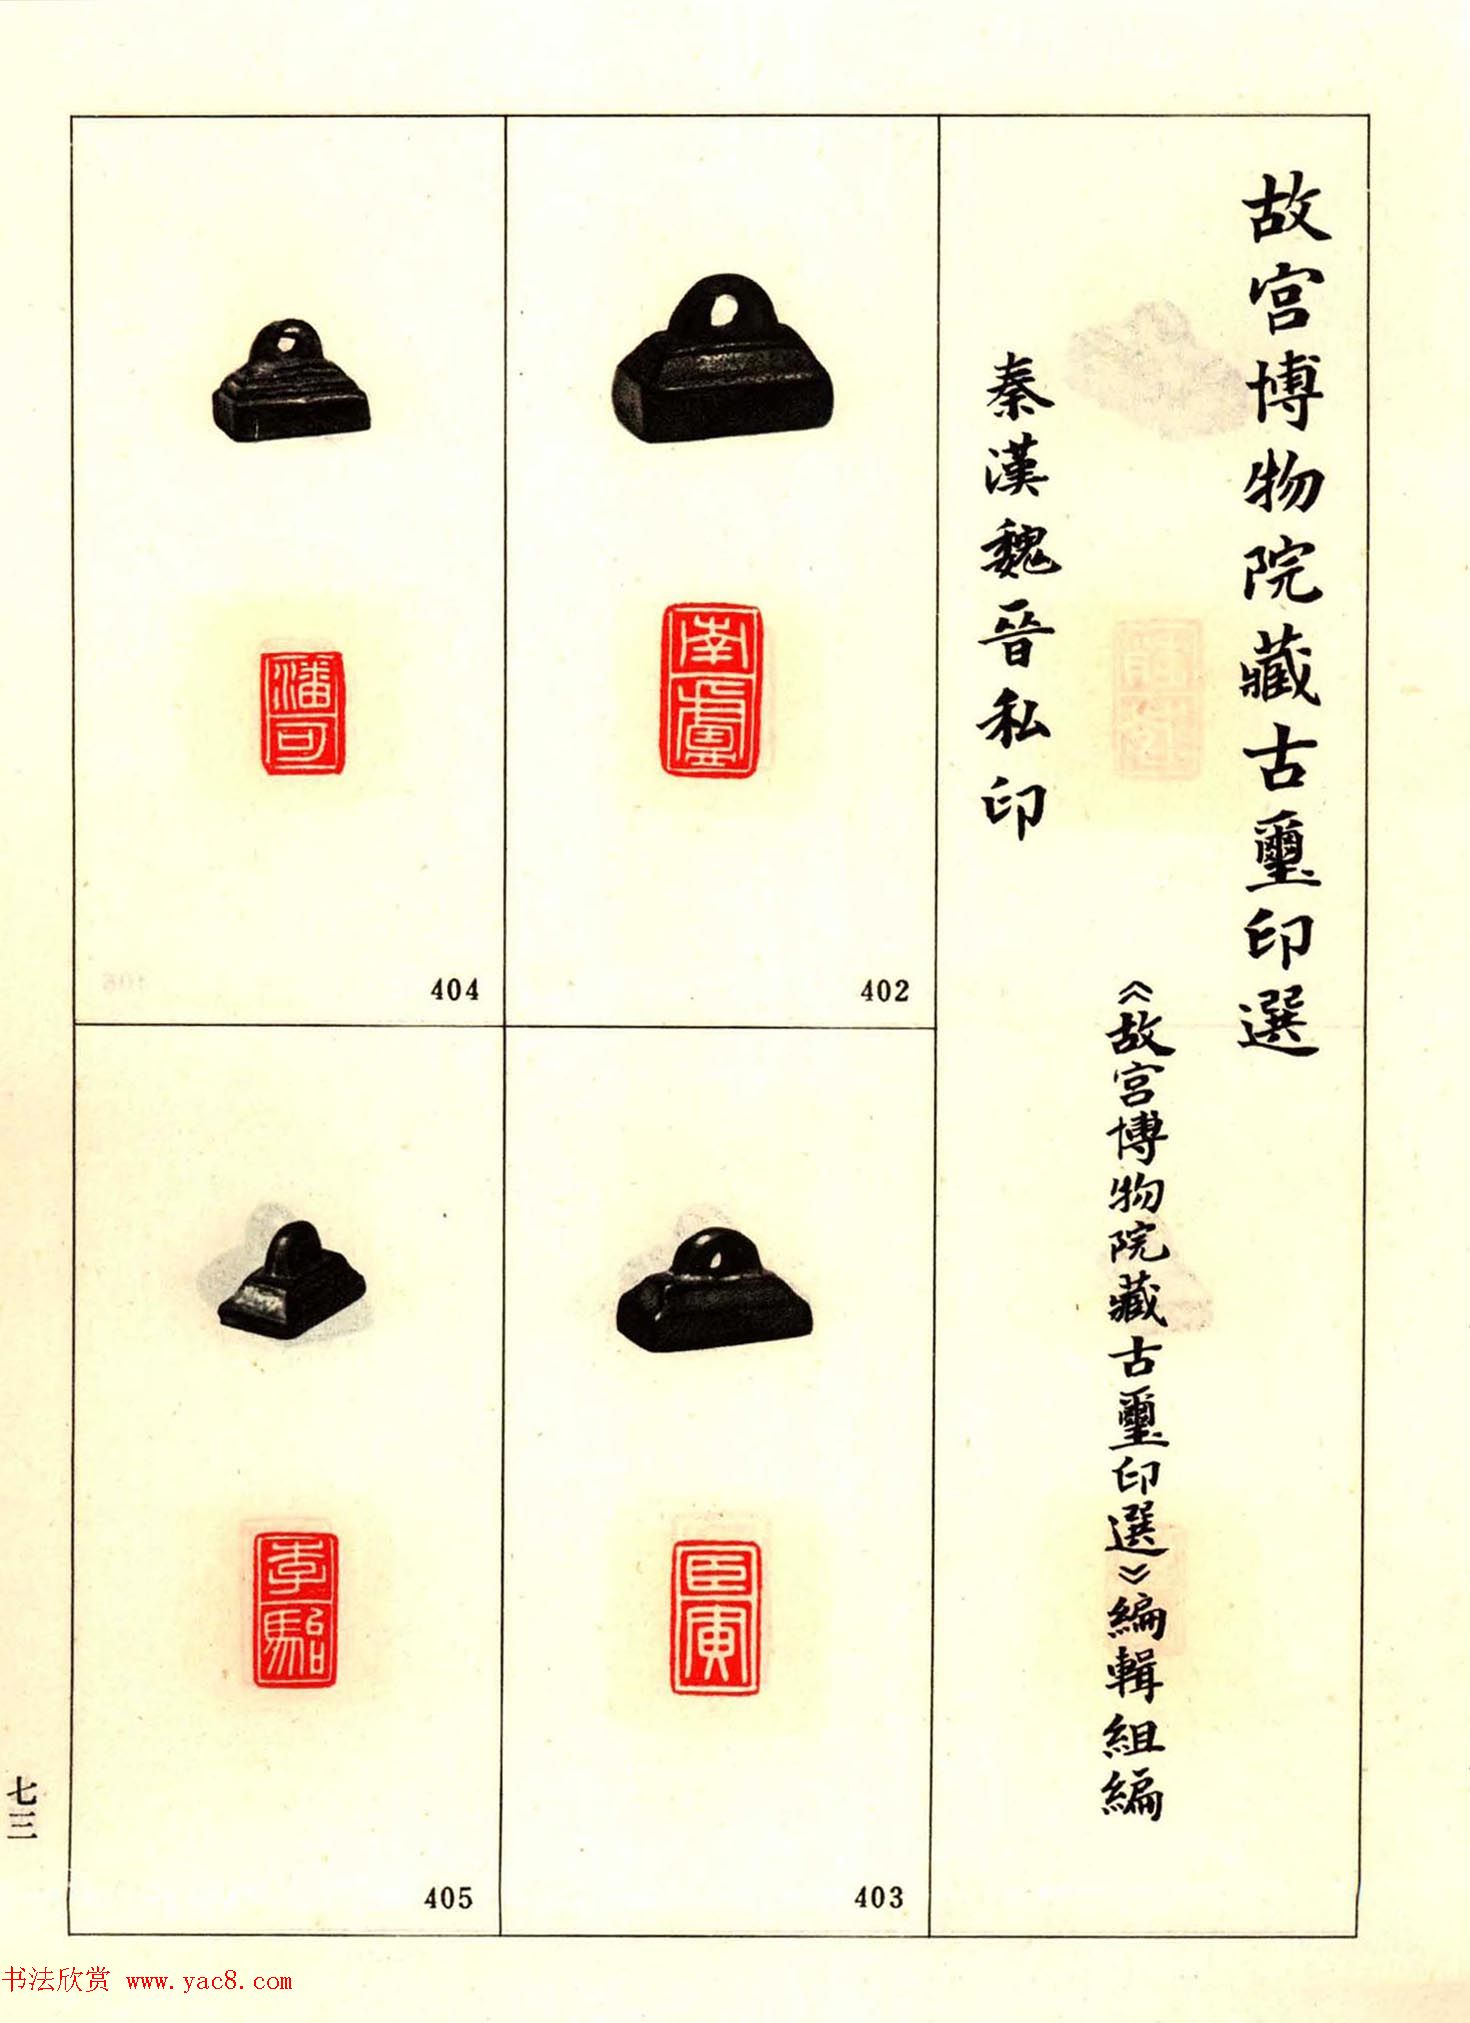 故宫博物院藏古璽印選
秦漢魏晉私印
《故宫博物院藏古璽印選》編輯組編
402
南
403
臣寅
404
潘可
405
李駘
七三
书法欣赏 www.yac8.com